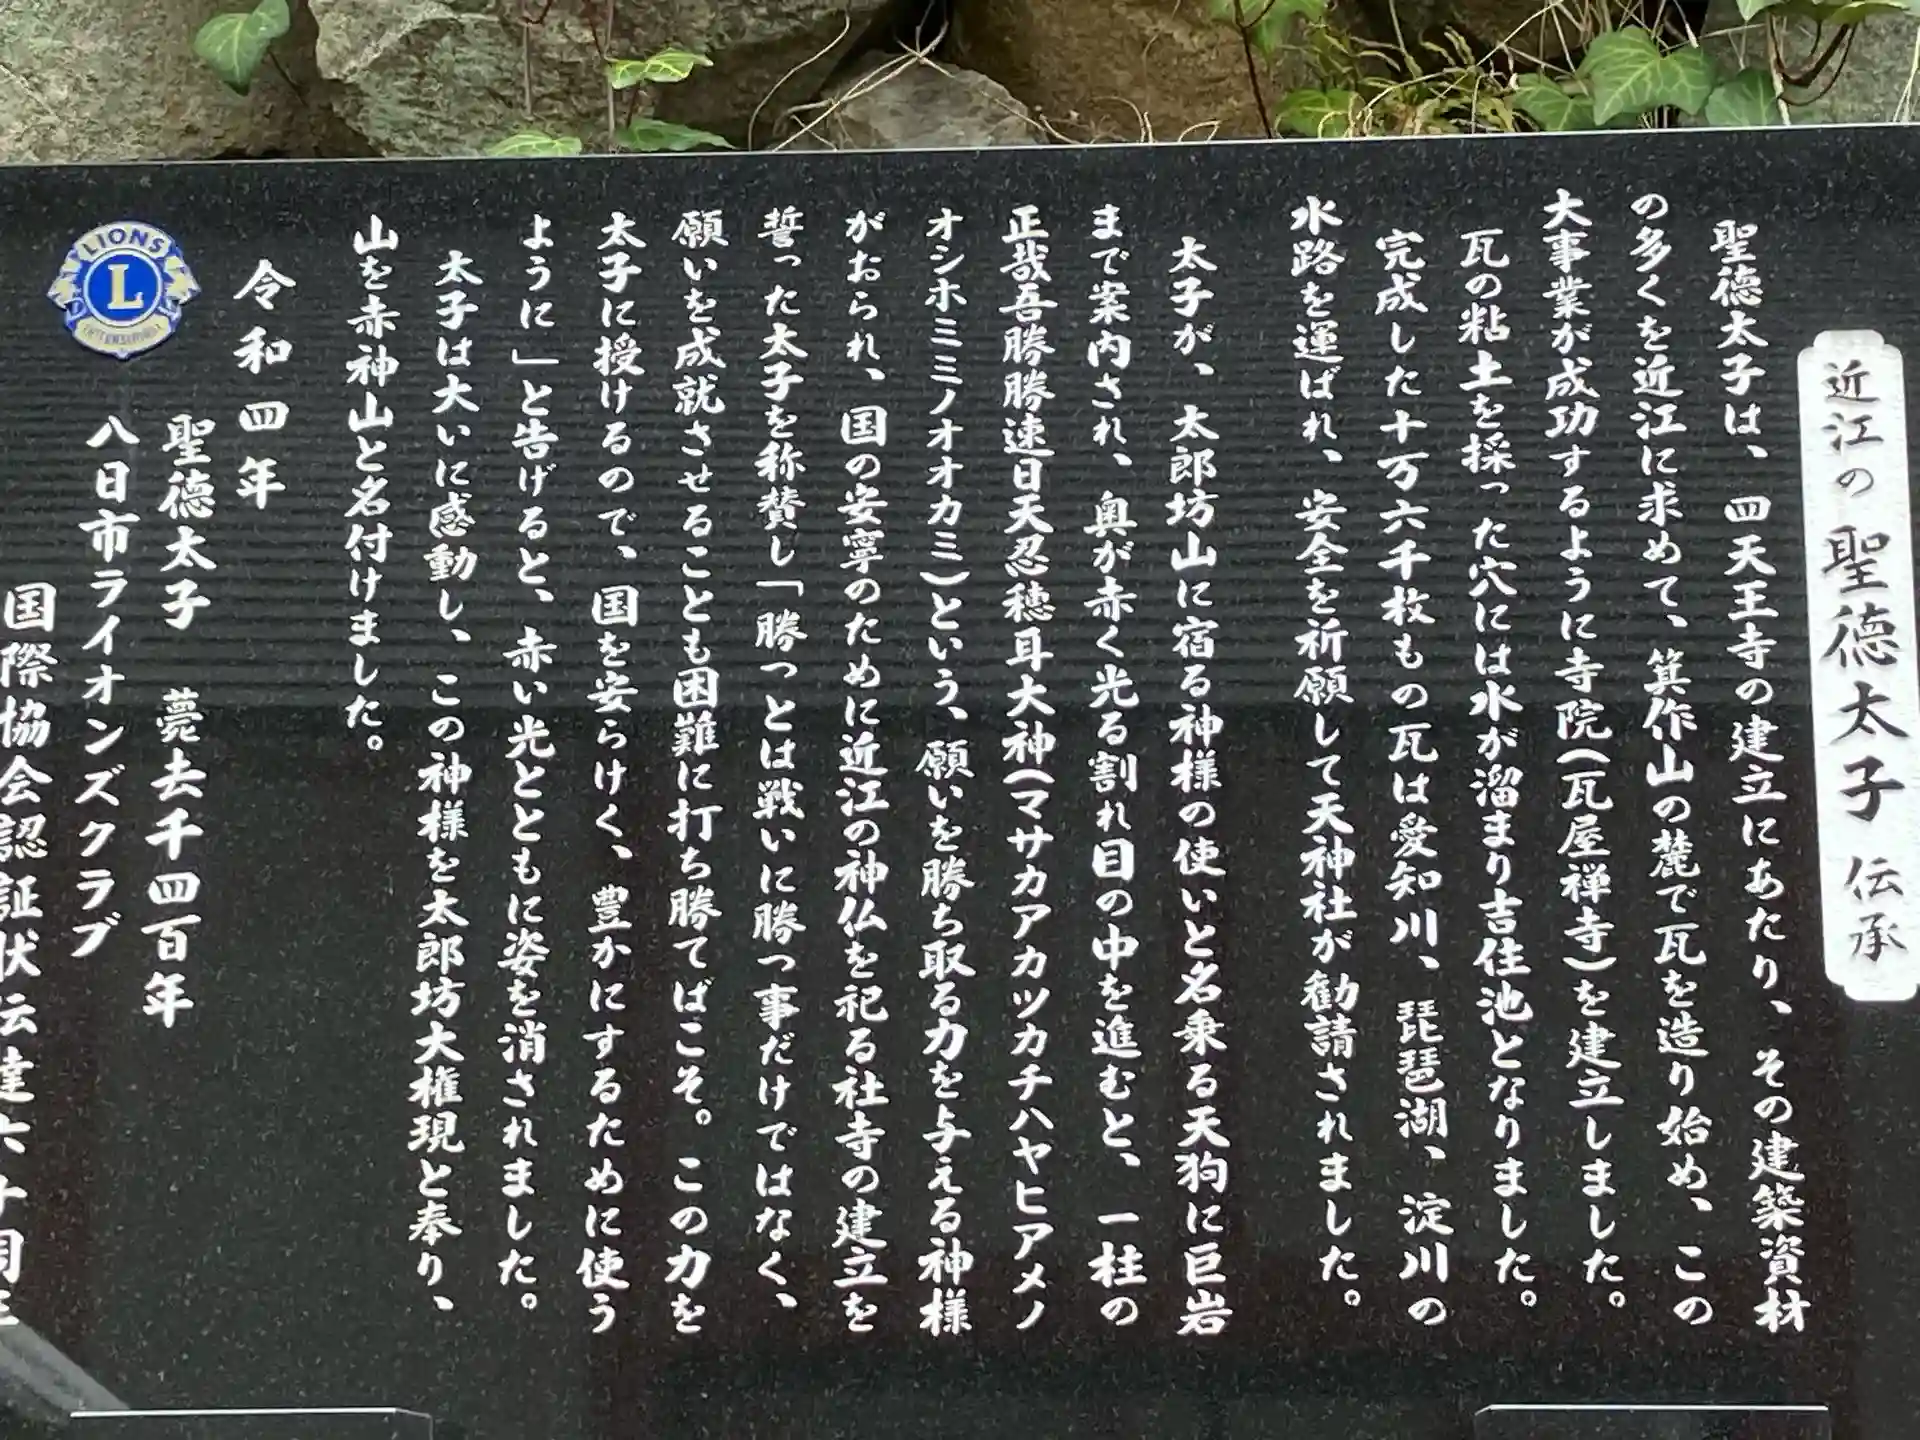 近江の聖徳太子伝承
聖徳太子は、四天王寺の建立にあたり、その建築資材
の多くを近江に求めて、箕作山の麓で瓦を造り始め、この
大事業が成功するように寺院(瓦屋禅寺)を建立しました。
瓦の粘土を採った穴には水が溜まり吉住池となりました。
完成した十万六千枚もの瓦は愛知川、琵琶湖、淀川の
水路を運ばれ、安全を祈願して天神社が勧請されました。
太子が、太郎坊山に宿る神様の使いと名乗る天狗に巨岩
まで案内され、奥が赤く光る割れ目の中を進むと、一柱の
正哉吾勝勝速日天忍穂耳大神(マサカアカツカチハヤヒアメノ
オシホミミノオオカミ)という、願いを勝ち取る力を与える神様
がおられ、国の安寧のために近江の神仏を祀る社寺の建立を
誓った太子を称賛し「勝つとは戦いに勝つ事だけではなく、
願いを成就させることも困難に打ち勝てばこそ。この力を
太子に授けるので、国を安らけく、豊かにするために使う
ように」と告げると、赤い光とともに姿を消されました。
太子は大いに感動し、この神様を太郎坊大権現と奉り、
山を赤神山と名付けました。
令和四年
聖徳太子 薨去千四百年
八日市ライオンズクラブ
国際協会認証状伝達六十周年
LIONS
L
INTERNATIONAL